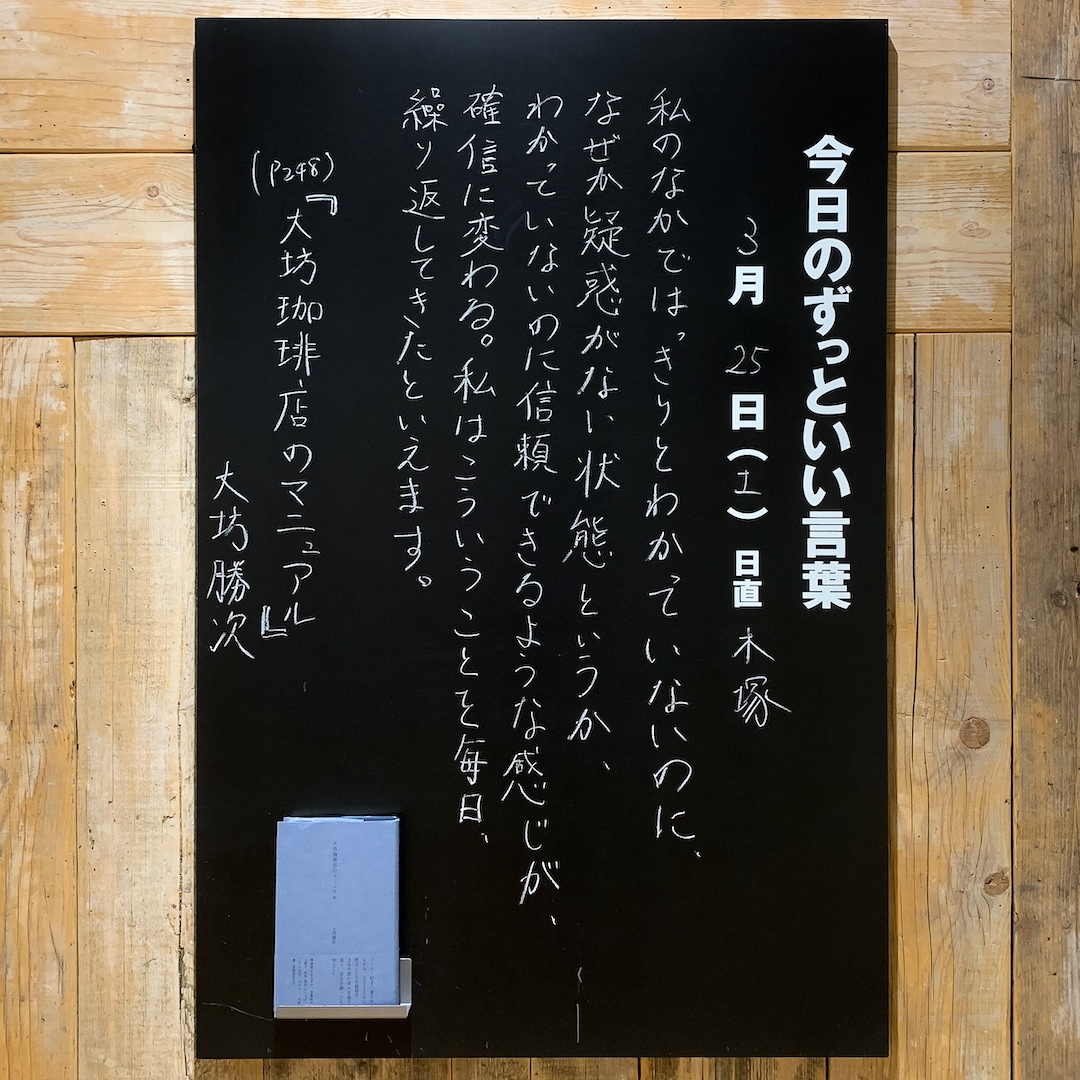 今日のずっといい言葉
3月25日(土) 日直 木塚
私のなかではっきりとわかっていないのに、
なぜか疑惑がない状態というか、
わかっていないのに信頼できるような感じが、
確信に変わる。私はこういうことを毎日、
繰り返してきたといえます。
(P248)
『大坊珈琲店のマニュアル』
大坊勝次
大坊珈琲店のマニュアル
大坊勝次